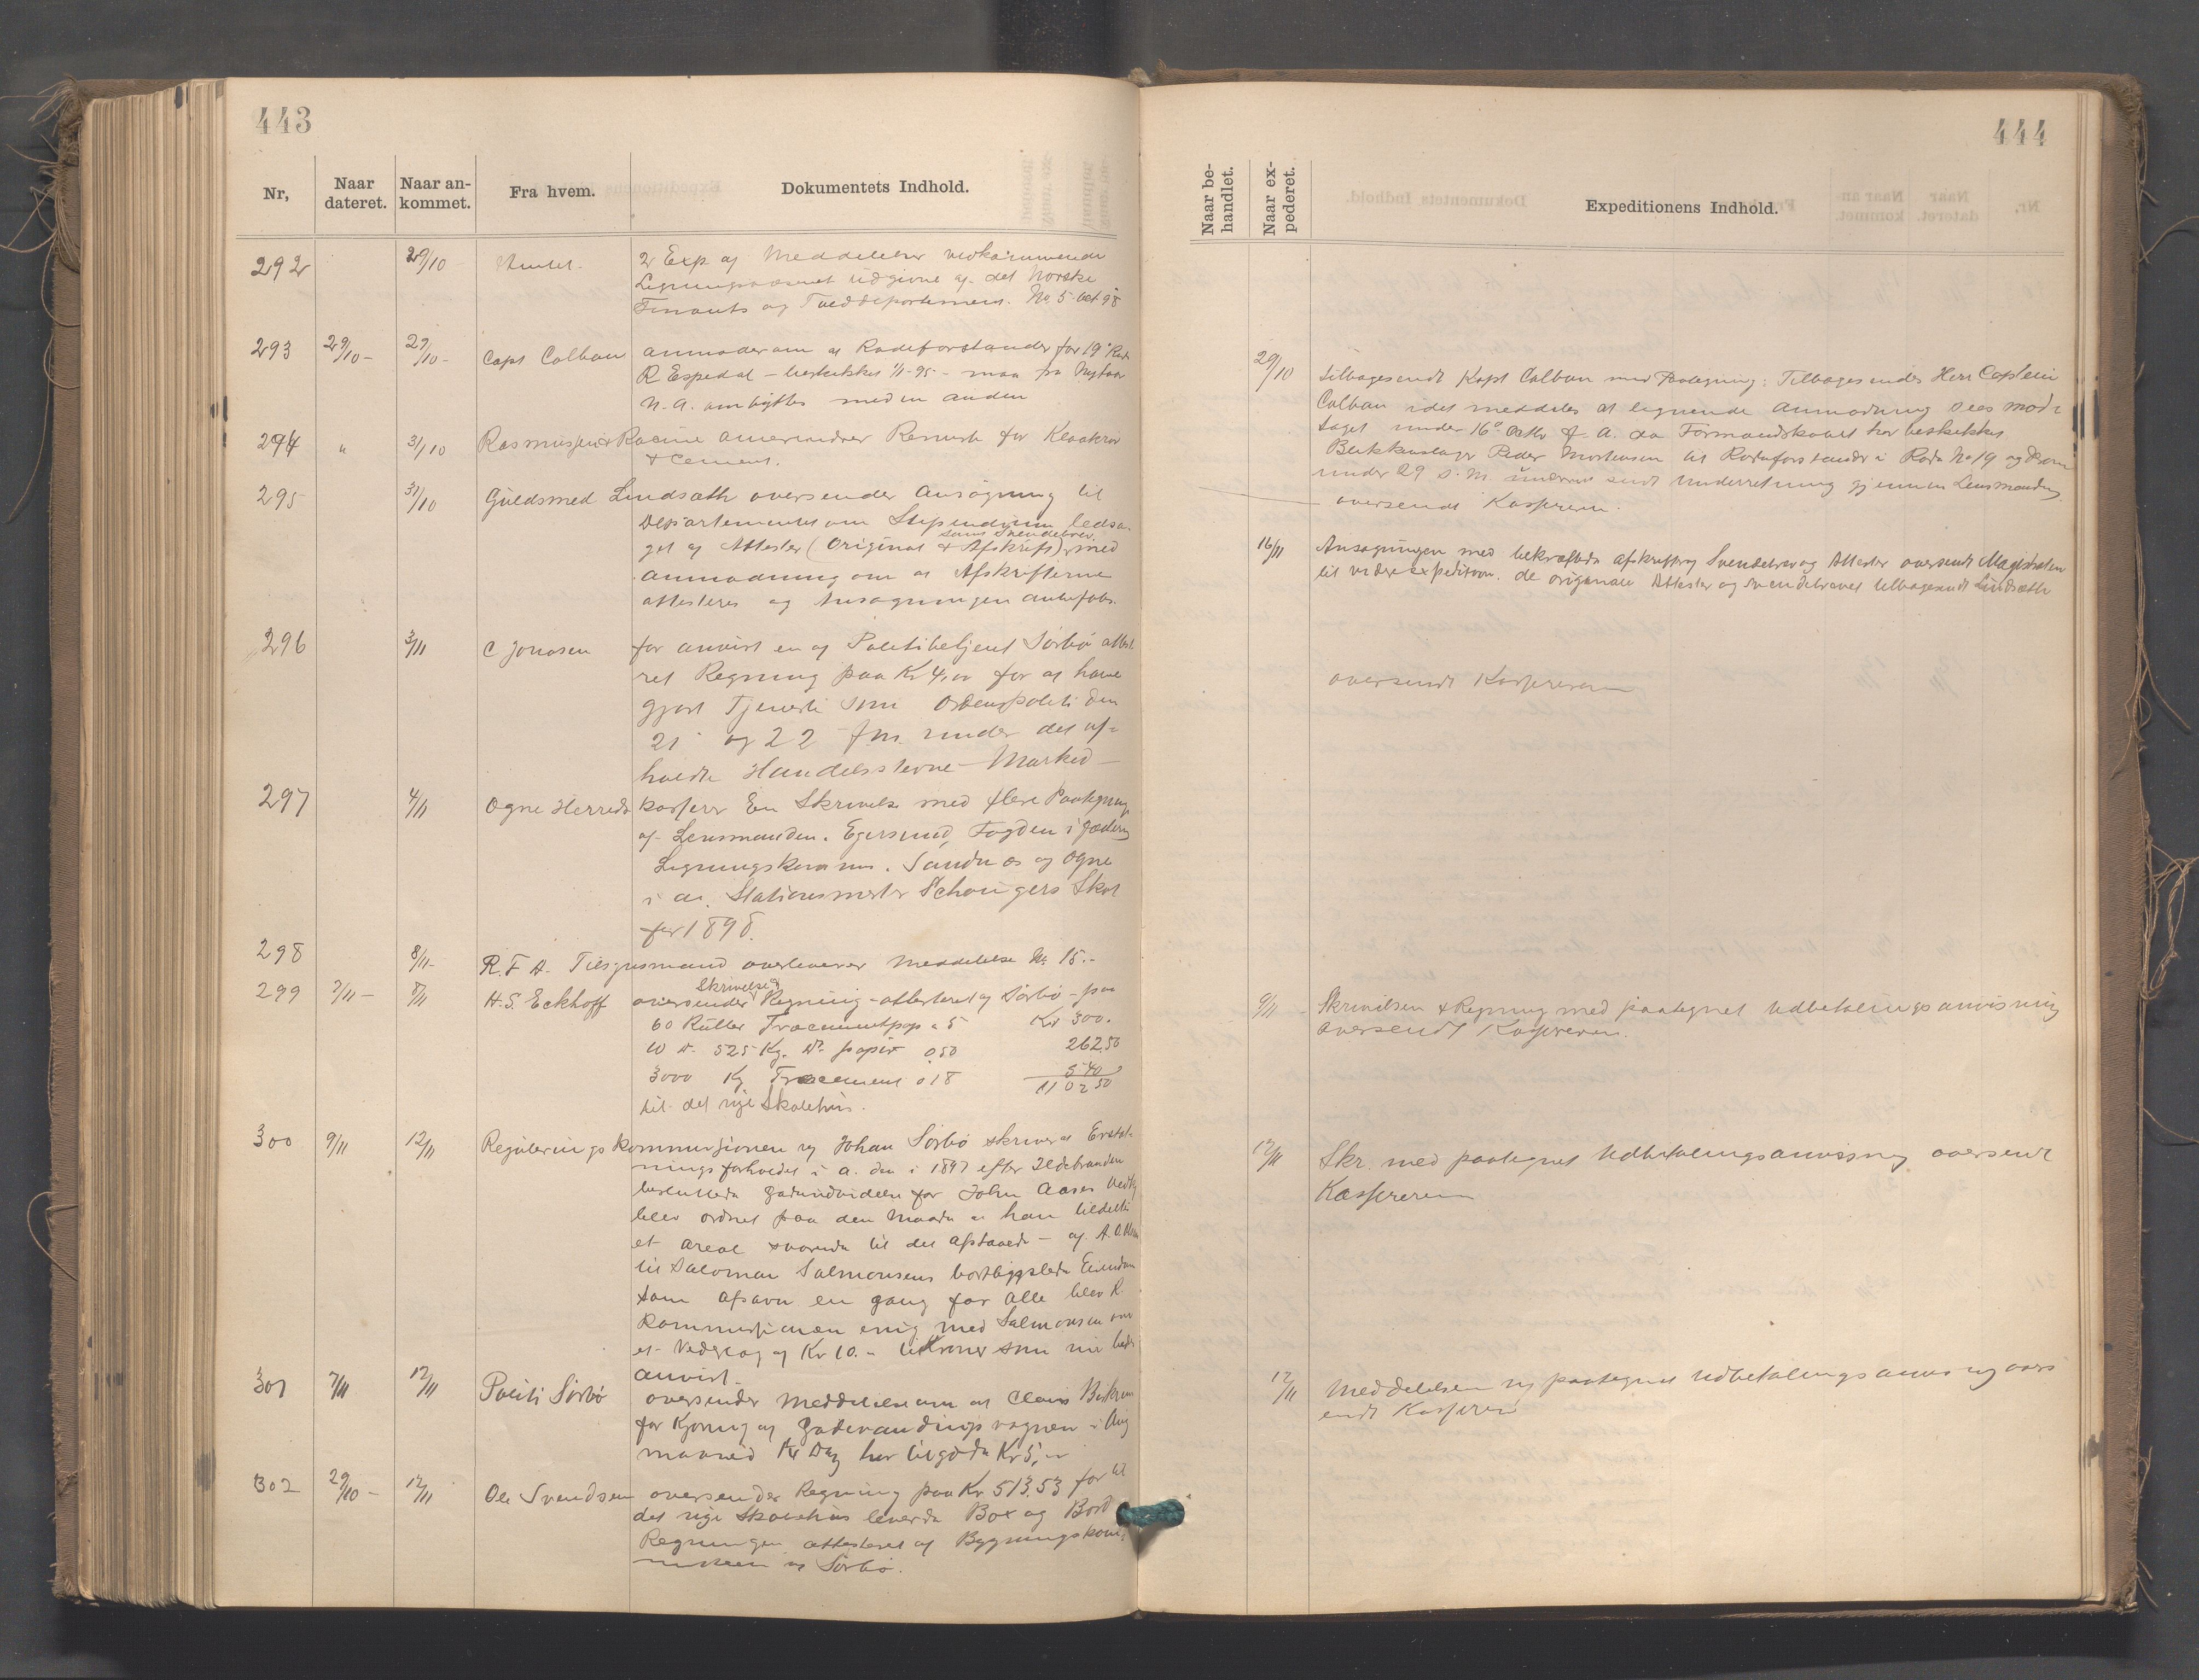 443
Nr,
Naar dateret.
Naar ankommet.
Fra hvem.
Dokumentets Indhold.
292 29/10 Amtet. 2 Exp af Meddelelser vedkommende
Ligningsvæsenet udgivne af det Norske
Finants og Tolddepartement. No 5 Oct 98
293 29/10 - 29/10 - Capt Colban anmoder om at Rodeforstander for 19de Rode
R Espedal - beskikket 1/1-95 - maa fra Nytaar
N. A. ombyttes med en anden
294 " 31/10 Rasmussen & Racine Remisse for Kloakrør
& Cement.
295 31/10 Guldsmed Lindsæth oversender Ansøgning til
Departementet om Stipendium ledsa-
get af Attester (Original & Afskrift) samt Svendebrev, med
Anmodning om at Afskrifterne
attesteres og Ansøgningen anbefales.
296 3/11 C Jonasen for anvist en af Politibetjent Sørbø attest
ret Regning paa Kr 4,00 for at have
gjort Tjeneste som Ordenspoliti den
21 og 22 f.m. under det af-
holdte Handelsstevne - Marked -
297 4/11 Ogne Herreds kasserer En Skrivelse med flere Paategninger
af Lensmanden i Egersund, Fogden i Jæderen
Ligningskomm. Sandnes og Ogne
i a. Stationsmester Schougers Skat
for 1898.
298 8/11 - R. F. H. Tilsynsmand overleverer Meddelelse No 15. -
299 7/11 - 8/11 H. S. Eckhoff oversender Skrivelse & Regning - attesteret af Sørbø - paa
60 Ruller Træcementpap a 5 Kr 300.
10 " 525 Kg. Do papir 0.50 262.50
3000 Kg Træcement 0 18 540
1102 50
til det nye Skolehus.
300 9/11 12/11 Reguleringskommissionen ved Johan Sørbø skriver at Erstat-
ningsforholdet i a. den i 1897 efter Ildebranden
besluttede Gadeudvidelse for John Aases Vedk
blev ordnet paa den Maade at han tildeltes
et Areal svarende til det afstaaede - af A. O.
til Salomon Salmonsens bortbyggslede Eiendom
som Afsavn en gang for alle blev R.
Kommissionen enig med Salmonsen om
et Vederlag af Kr 10. - ti Kroner som nu bedes
anvist.
301 7/11 12/11 Politi Sørbø oversender Meddelelse om at Claus Birkrem
for Kjøring af Gadevandingsvognen i Aug
maaned Dag har tilgode Kr 5,-
302 29/10 - 12/11 Ole Svendsen oversender Regning paa Kr 513.53 for til
det nye Skolehus leverede Box og Bord
Regningen attesteret af Bygningskom-
missionen og Sørbø.
444
Naar behandlet.
Naar expederet.
Expeditionens Indhold.
29/10 tilbagesendt Kapt Colban med Paategning: Tilbagesendes Herr Captein
Colban idet meddeles at lignende Anmodning sees mod-
taget under 16de Octbr f. A. da Formandskabet har beskikket
Blikkenslager Peder Mortensen til Rodeforstander i Rode No 19 og ham
under 29 s. M. sendt Underretning gjennem Lensmanden
oversendt Kassereren.
16/11 Ansøgningen med bekræftede Afskrift af Svendebrev og Attester oversendt Magistraten
til videre Expedition. de originale Attester og Svendebrevet tilbagesendt Lindsæth
oversendt Kassereren
9/11 Skrivelsen & Regning med paategnet Udbetalingsanvisning
oversendt Kassereren.
12/11 Skr. med paategnet Udbetalingsanvisning oversendt
Kassereren
12/11 Meddelelsen og paategnet Udbetalingsanvisning overs
endt Kassereren